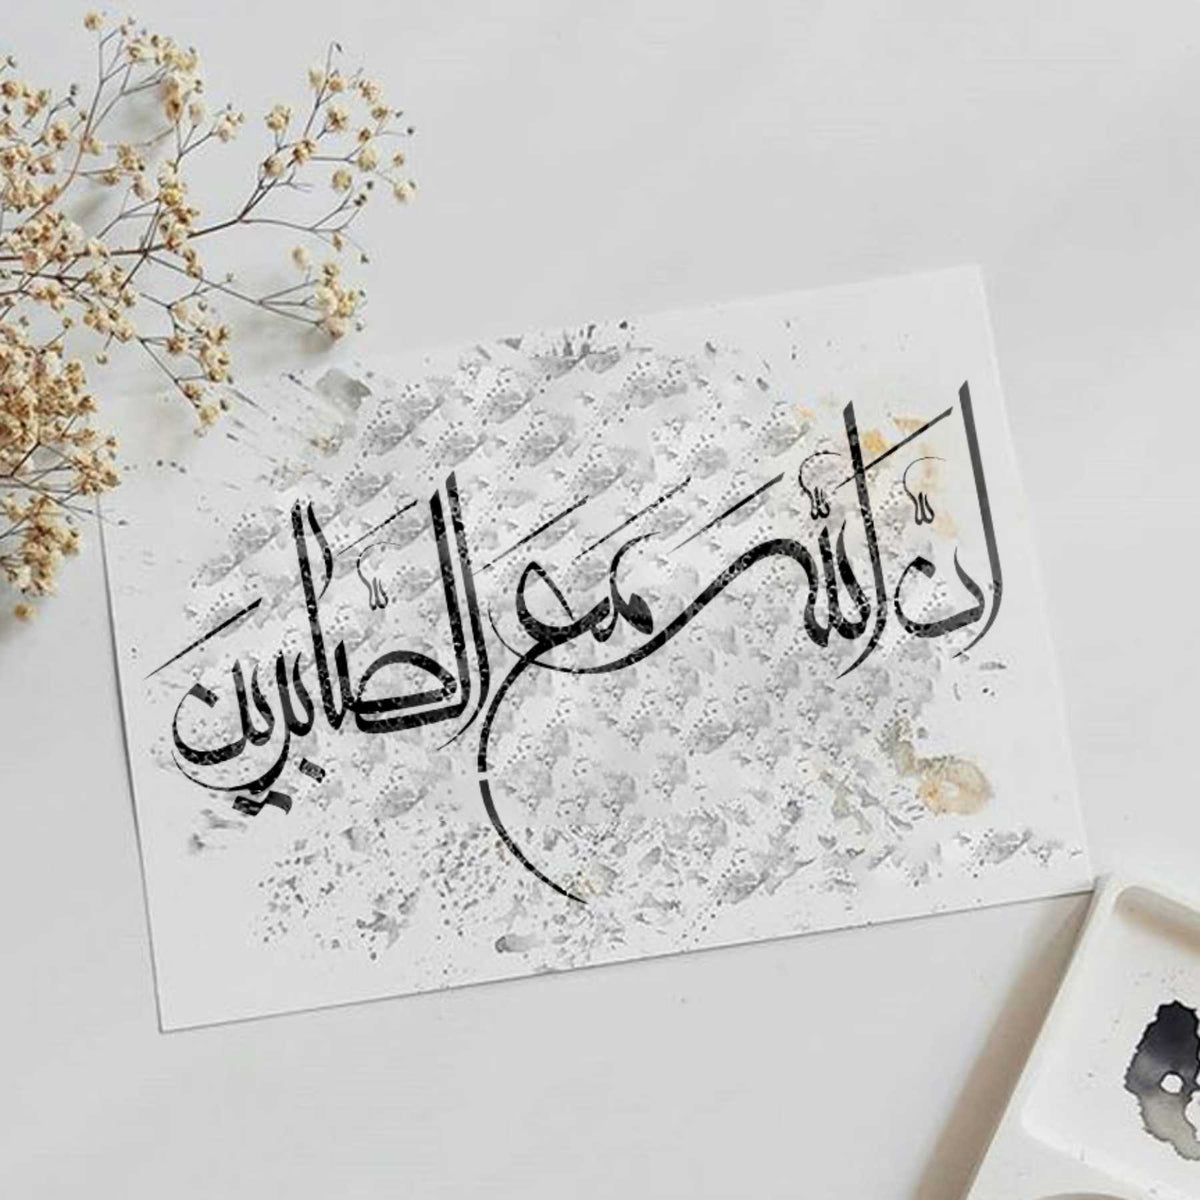 انّ اللّه مع الصّابرين